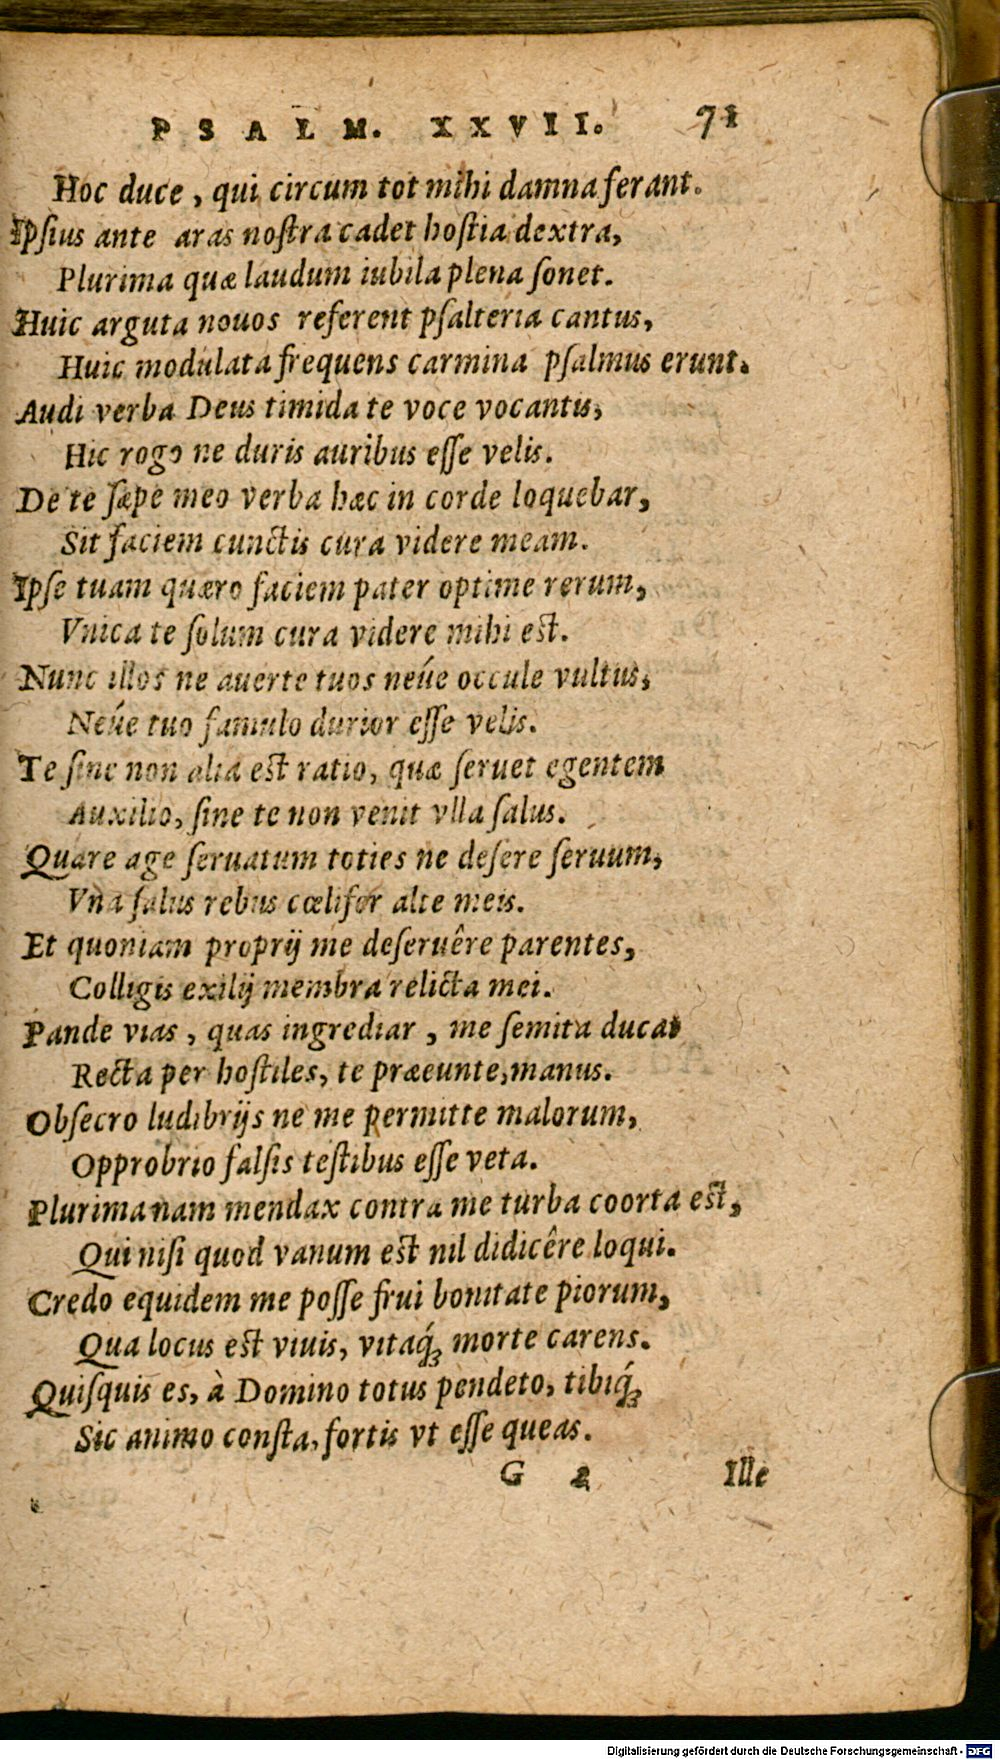 PSALM. XXVII. 71
Hoc duce, qui circum tot mihi damna ferant.
Ipſius ante aras noſtra cadet hoſtia dextra,
Plurima quæ laudum iubila plena ſonet.
Huic arguta nouos referent pſalteria cantus,
Huic modulata frequens carmina pſalmus erunt.
Audi verba Deus timida te voce vocantis,
Hic rogo ne duris auribus eſſe velis.
De te ſæpe meo verba hæc in corde loquebar,
Sit faciem cunctis cura videre meam.
Ipſe tuam quæro faciem pater optime rerum,
Vnica te ſolum cura videre mihi eſt.
Nunc illos ne auerte tuos neúe occule vultus,
Neúe tuo famulo durior eſſe velis.
Te ſine non alia eſt ratio, quæ ſeruet egentem
Auxilio, ſine te non venit vlla ſalus.
Quare age ſeruatum toties ne deſere ſeruum,
Vna ſalus rebus cœlifer alte meis.
Et quoniam proprij me deſeruêre parentes,
Colligis exilij membra relicta mei.
Pande vias, quas ingrediar, me ſemita ducat
Recta per hoſtiles, te præeunte, manus.
Obſecro ludibrijs ne me permitte malorum,
Opprobrio falſis teſtibus eſſe veta.
Plurima nam mendax contra me turba coorta eſt,
Qui niſi quod vanum eſt nil didicêre loqui.
Credo equidem me poſſe frui bonitate piorum,
Qua locus eſt viuis, vitaq́ꝫ morte carens.
Quiſquis es, à Domino totus pendeto, tibiq́ꝫ
Sic animo conſta, fortis vt eſſe queas.
G 2 Ille
Digitalisierung gefördert durch die Deutsche Forschungsgemeinschaft - DFG